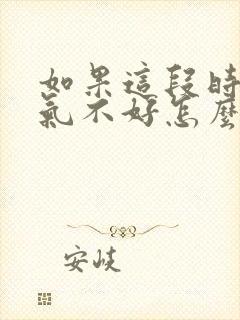 如果這段時
氣不好怎麼
安岐